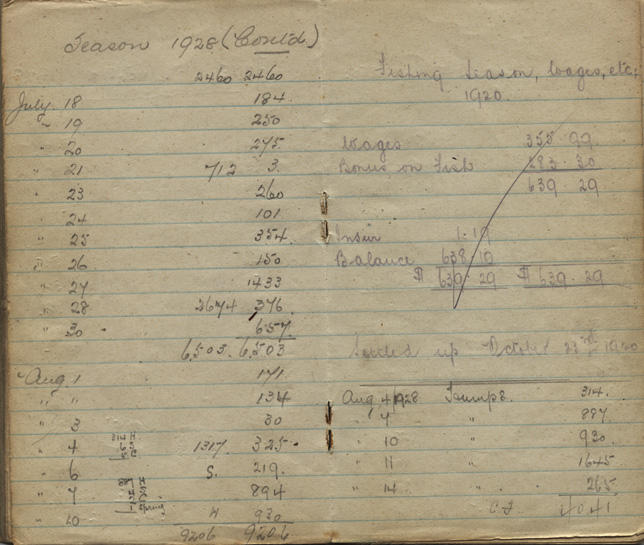 Season 1928 (Contd.)
2460 2460
July 18 184.
" 19 250
" 20 275.
" 21 712 3.
" 23 260
" 24 101
" 25 354.
" 26 150
" 27 1433
" 28 2674 376
" 30 657.
6,503. 6,503
Aug. 1 171.
" " 134
" 3 30
314 H
6 S
5 C
" 4 1317. 325.
" 6 S. 219.
887 H
Spring
" 7 894
" 10 H 930
9206 9206
Fishing Season, Wages, etc;
1920.
Wages 355.99
Bonus on Fish 283.30
639.29
Insur 1.19
Balance 638.10
$ 639.29 $ 639.29
Settled up October 23rd 1920
Aug 4/1928 314.
" 7 " 887
" 10 " 930
" 11 " 1645
" 14 " 265
4041